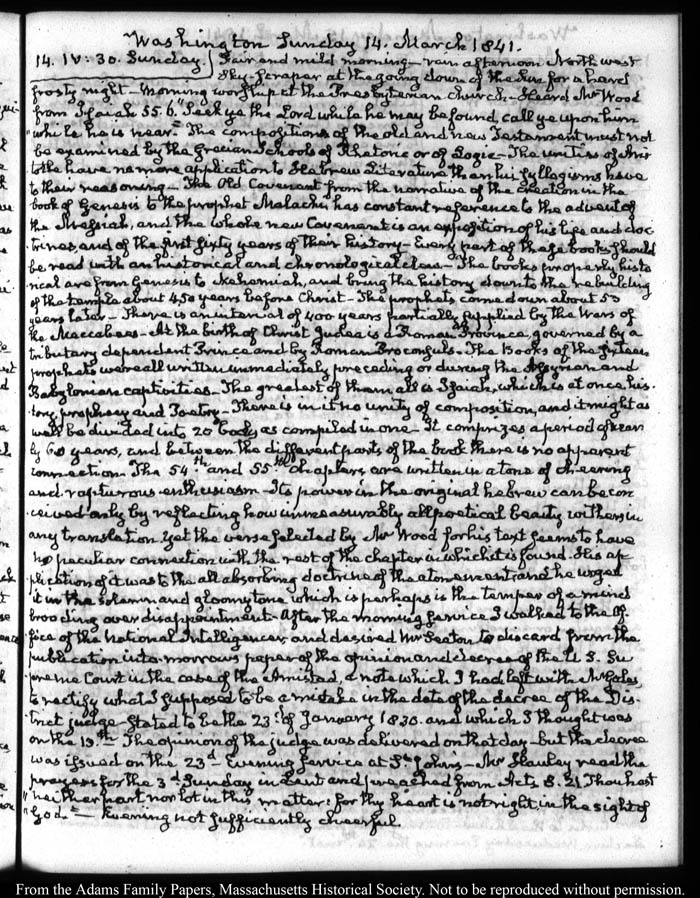 Washington Sunday 14. March 1841.
14. IV: 30. Sunday. Fair and mild morning — rain afternoon North west
Sky-scraper at the going down of the Sun for a hard
frosty night — Morning worship at the Presbyterian Church — Heard Mr Wood
from Isaiah 55. 6. "Seek ye the Lord while he may be found, call ye upon him
"while he is near." The compositions of the old and new Testament must not
be examined by the Grecian Schools of Rhetoric or of Logic — The unities of Aris
totle have no more application to Hebrew Literature than his syllogisms have
to their reasoning — The Old Covenant from the narrative of the creation in the
book of Genesis to the prophet Malachi has constant reference to the advent of
the Messiah, and the whole new Covenant is an exposition of his life and doc
trines, and of the first sixty years of their history — Every part of these books should
be read with an historical and chronological clew — The books properly histo
rical are from Genesis to Nehemiah, and bring the history down to the rebuilding
of the temple about 450 years before Christ — The prophets come down about 50
years later — There is an interval of 400 years partially supplied by the Wars of
the Maccabees — At the birth of Christ Judea is a Roman Province, governed by a
tributary dependent Prince and by Roman Proconsuls — The Books of the sixteen
prophets were all written immediately preceding or during the Assyrian and
Babylonian captivities — The greatest of them all is Isaiah, which is at once, his
tory, prophecy and Poetry — There is in it no unity of composition, and it might as
well be divided into 20 books as compiled in one — It comprizes a period of near
ly 60 years, and between the different parts of the book there is no apparent
connection — The 54th and 55th chapters are written in a tone of cheering
and rapturous enthusiasm — Its power in the original hebrew can be con
ceived only by reflecting how immeasurably all poetical beauty withers in
any translation. Yet the verse selected by Mr Wood for his text seems to have
no peculiar connection with the rest of the chapter in which it is found. His ap
plication of it was to the all absorbing doctrine of the atonement, and he urged
it in the solemn and gloomy tone which is perhaps is the temper of a mind
brooding over disappointment — After the morning service I walked to the Of
fice of the National Intelligencer, and desired Mr Seaton to discard from the
publication in to-morrow's paper of the opinion and decree of the U. S. Su
preme Court in the case of the Amistad, a note which I had left with Mr Gales,
to rectify what I supposed to be a mistake in the date of the decree of the Dis
trict judge — stated to be the 23d of January 1830. and which I thought was
on the 13th — The opinion of the judge was delivered on that day — but the decree
was issued on the 23d Evening service at St Johns — Mr Hawley read the
prayers for the 3d Sunday in Lent and preached from Acts 8. 21 Thou hast
"neither part nor lot in this matter: for thy heart is not right in the sight of
"God." — Evening not sufficiently cheerful.
From the Adams Family Papers, Massachusetts Historical Society. Not to be reproduced without permission.